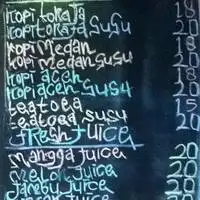 kopi toraja 18
kopi toraja susu 20
kopi Medan 18
kopi Medan susu 20
kopi aceh 18
kopi aceh susu 20
teatoea 15
teatoea susu 20
fresh juice
Mangga juice 20
Melon juice 20
Jambu juice 20
juice 20